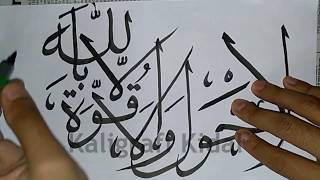 لا حول ولا قوة إلا بالله
Kaligrafi Kidal